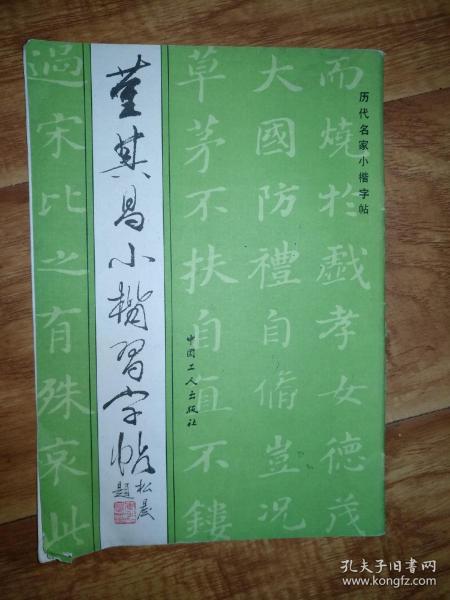 历代名家小楷字帖
而燒於戲孝女德茂
大國防禮自脩豈况
草茅不扶自直不鏤
中国工人出版社
董其昌小楷習字帖
松晨
題
過宋比之有殊哀此
孔夫子旧书网
www.kongfz.com